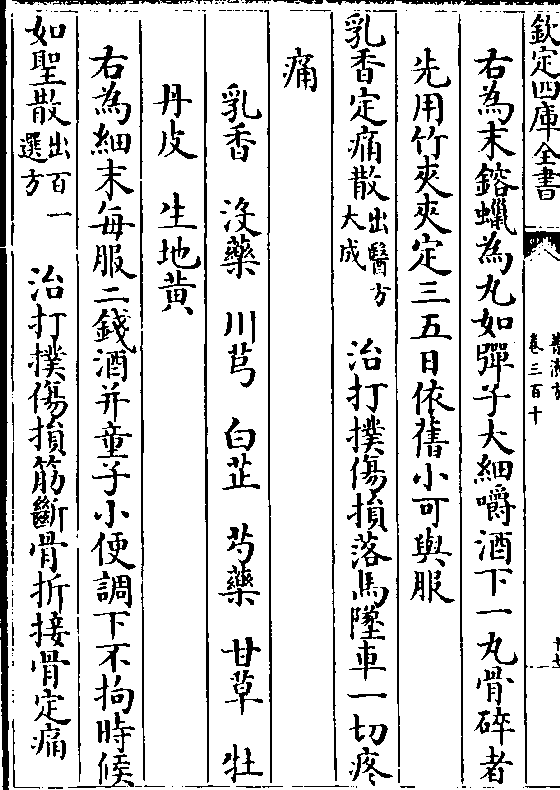 欽定四庫全書
卷三百十
右為末鎔蠟為丸如彈子大細嚼酒下一丸骨碎者
先用竹夾夾定三五日依舊小可與服
乳香定痛散出醫方大成 治打撲傷損落馬墜車一切疼
痛
乳香 沒藥 川芎 白芷 芍藥 甘草 牡
丹皮 生地黄
右為細末每服二錢酒并童子小便調下不拘時候
如聖散出百一選方 治打撲傷損筋斷骨折接骨定痛